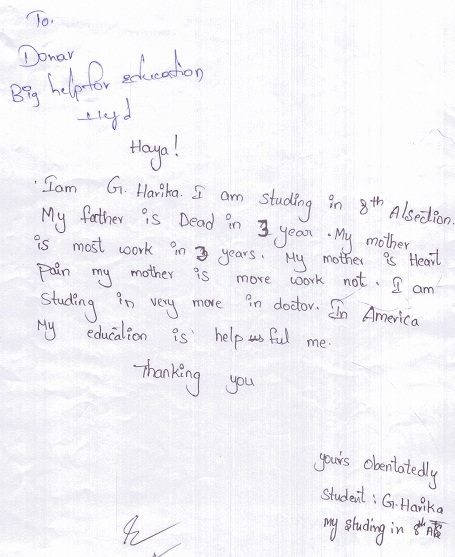 To.
Donar
Big help for education
Hyd
Haya!
Iam G. Harika. I am studing in 8th A/section.
My father is Dead in 3 year. My mother
is most work in 3 years. My mother is Heart
Pain my mother is more work not. I am
studing in very more in doctor. In America
My education is help us ful me.
Thanking you
your's obentatedly
Student : G. Harika
My studing in 8th A